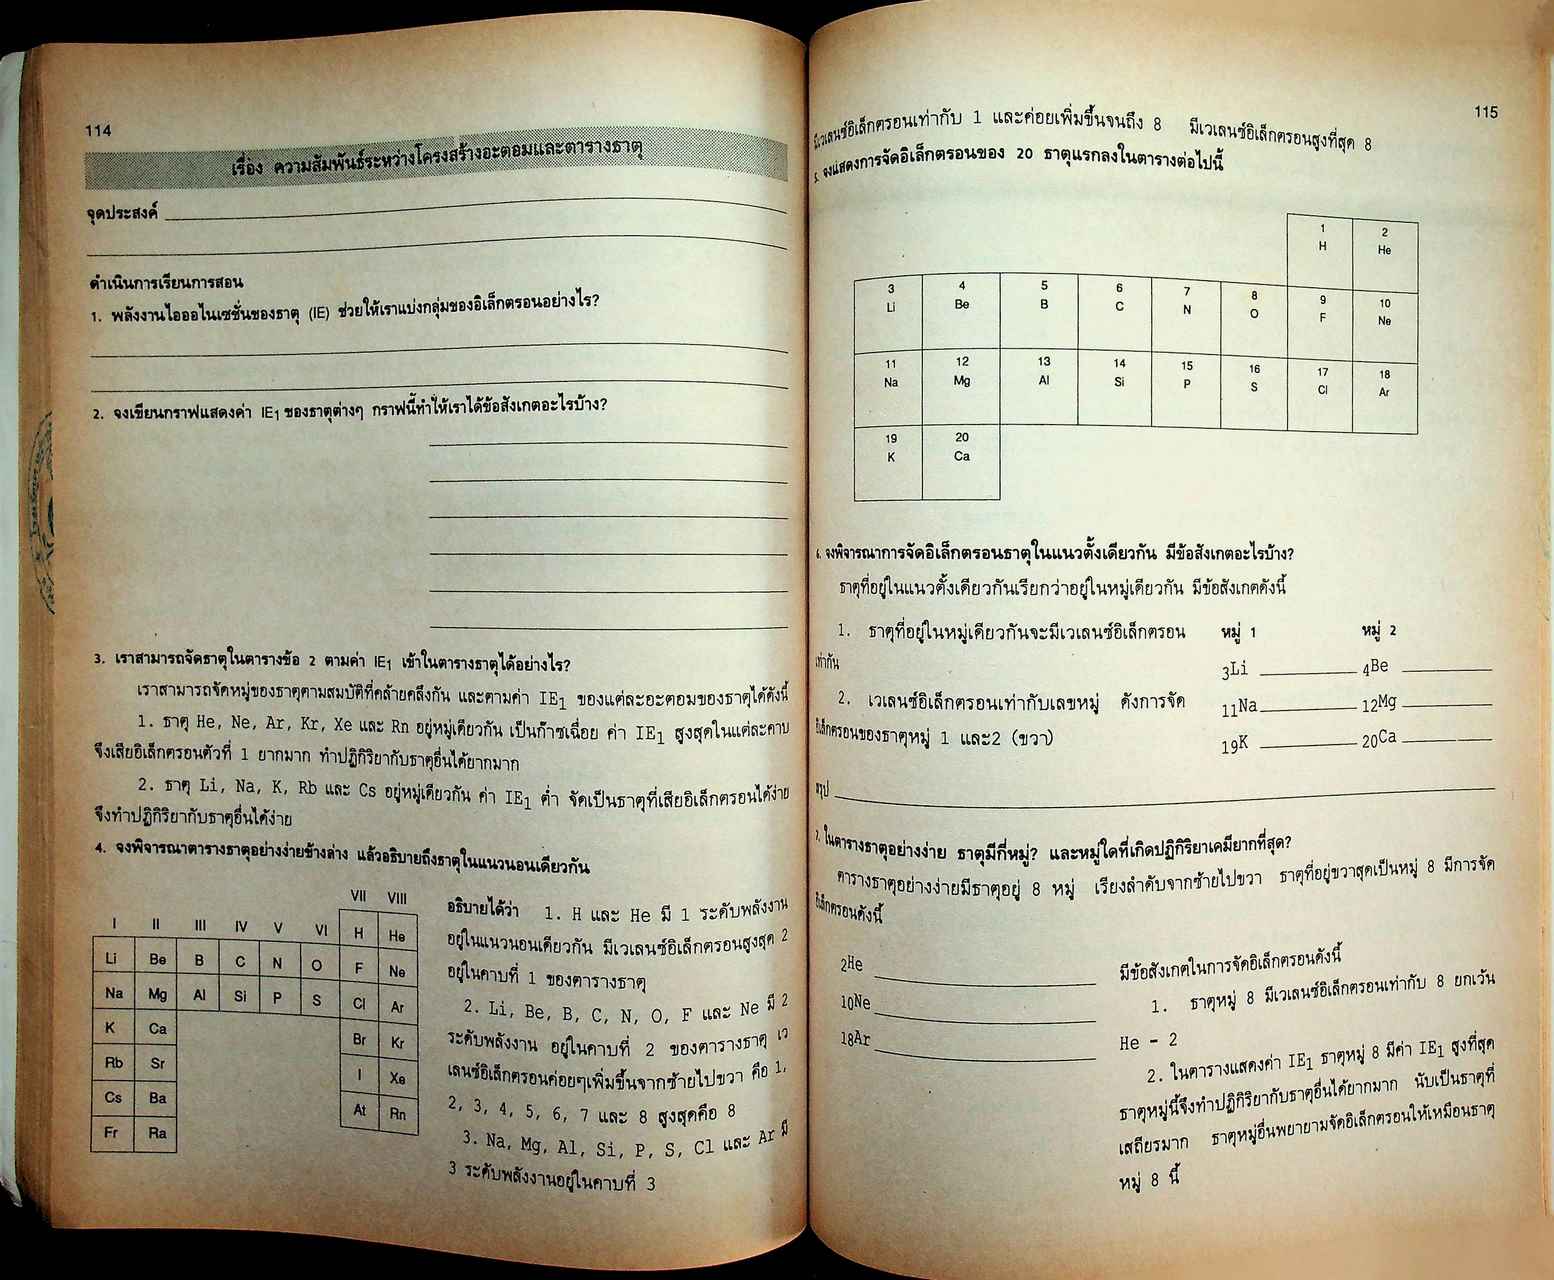 114
เรื่อง ความสัมพันธ์ระหว่างโครงสร้างอะตอมและตารางธาตุ
จุดประสงค์
ดำเนินการเรียนการสอน
1. พลังงานไอออไนเซชั่นของธาตุ (IE) ช่วยให้เราแบ่งกลุ่มของอิเล็กตรอนอย่างไร?
2. จงเขียนกราฟแสดงค่า IE1 ของธาตุต่างๆ กราฟนี้ทำให้เราได้ข้อสังเกตอะไรบ้าง?
3. เราสามารถจัดธาตุในตารางข้อ 2 ตามค่า IE1 เข้าในตารางธาตุได้อย่างไร?
เราสามารถจัดหมู่ของธาตุตามสมบัติที่คล้ายคลึงกัน และตามค่า IE1 ของแต่ละอะตอมของธาตุได้ดังนี้
1. ธาตุ He, Ne, Ar, Kr, Xe และ Rn อยู่หมู่เดียวกัน เป็นก๊าซเฉื่อย ค่า IE1 สูงสุดในแต่ละคาบ
จึงเสียอิเล็กตรอนตัวที่ 1 ยากมาก ทำปฏิกิริยากับธาตุอื่นได้ยากมาก
2. ธาตุ Li, Na, K, Rb และ Cs อยู่หมู่เดียวกัน ค่า IE1 ต่ำ จัดเป็นธาตุที่เสียอิเล็กตรอนได้ง่าย
จึงทำปฏิกิริยากับธาตุอื่นได้ง่าย
4. จงพิจารณาตารางธาตุอย่างง่ายข้างล่าง แล้วอธิบายถึงธาตุในแนวนอนเดียวกัน
I II III IV V VI VII VIII
H He
Li Be B C N O F Ne
Na Mg Al Si P S Cl Ar
K Ca Br Kr
Rb Sr I Xe
Cs Ba At Rn
Fr Ra
อธิบายได้ว่า 1. H และ He มี 1 ระดับพลังงาน
อยู่ในแนวนอนเดียวกัน มีเวเลนซ์อิเล็กตรอนสูงสุด 2
อยู่ในคาบที่ 1 ของตารางธาตุ
2. Li, Be, B, C, N, O, F และ Ne มี 2
ระดับพลังงาน อยู่ในคาบที่ 2 ของตารางธาตุ เว
เลนซ์อิเล็กตรอนค่อยๆเพิ่มขึ้นจากซ้ายไปขวา คือ 1,
2, 3, 4, 5, 6, 7 และ 8 สูงสุดคือ 8
3. Na, Mg, Al, Si, P, S, Cl และ Ar มี
3 ระดับพลังงานอยู่ในคาบที่ 3
115
มีเวเลนซ์อิเล็กตรอนเท่ากับ 1 และค่อยเพิ่มขึ้นจนถึง 8 มีเวเลนซ์อิเล็กตรอนสูงที่สุด 8
5. จงแสดงการจัดอิเล็กตรอนของ 20 ธาตุแรกลงในตารางต่อไปนี้
1 2
H He
3 4 5 6 7 8 9 10
Li Be B C N O F Ne
11 12 13 14 15 16 17 18
Na Mg Al Si P S Cl Ar
19 20
K Ca
6. จงพิจารณาการจัดอิเล็กตรอนธาตุในแนวตั้งเดียวกัน มีข้อสังเกตอะไรบ้าง?
ธาตุที่อยู่ในแนวตั้งเดียวกันเรียกว่าอยู่ในหมู่เดียวกัน มีข้อสังเกตดังนี้
1. ธาตุที่อยู่ในหมู่เดียวกันจะมีเวเลนซ์อิเล็กตรอน
เท่ากัน
2. เวเลนซ์อิเล็กตรอนเท่ากับเลขหมู่ ดังการจัด
อิเล็กตรอนของธาตุหมู่ 1 และ2 (ขวา)
หมู่ 1 หมู่ 2
3Li 4Be
11Na 12Mg
19K 20Ca
สรุป
7. ในตารางธาตุอย่างง่าย ธาตุมีกี่หมู่? และหมู่ใดที่เกิดปฏิกิริยาเคมียากที่สุด?
ตารางธาตุอย่างง่ายมีธาตุอยู่ 8 หมู่ เรียงลำดับจากซ้ายไปขวา ธาตุที่อยู่ขวาสุดเป็นหมู่ 8 มีการจัด
อิเล็กตรอนดังนี้
2He
10Ne
18Ar
มีข้อสังเกตในการจัดอิเล็กตรอนดังนี้
1. ธาตุหมู่ 8 มีเวเลนซ์อิเล็กตรอนเท่ากับ 8 ยกเว้น
He - 2
2. ในตารางแสดงค่า IE1 ธาตุหมู่ 8 มีค่า IE1 สูงที่สุด
ธาตุหมู่นี้จึงทำปฏิกิริยากับธาตุอื่นได้ยากมาก นับเป็นธาตุที่
เสถียรมาก ธาตุหมู่อื่นพยายามจัดอิเล็กตรอนให้เหมือนธาตุ
หมู่ 8 นี้